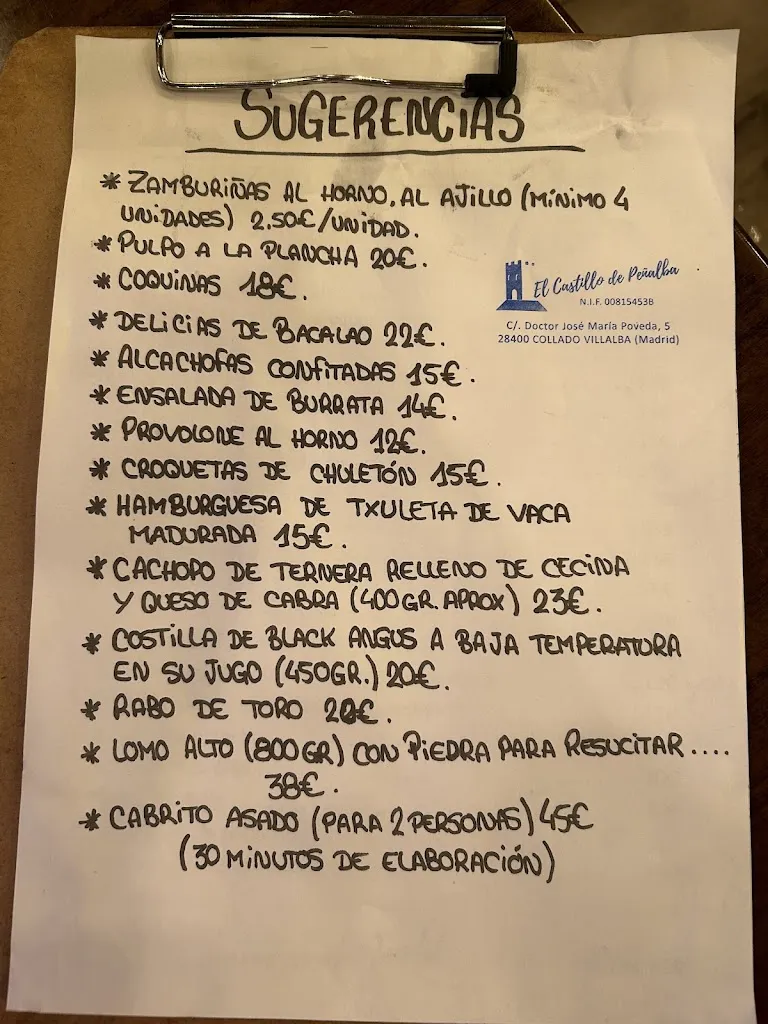 SUGERENCIAS
* ZAMBURIÑAS AL HORNO, AL AJILLO (MÍNIMO 4
UNIDADES) 2.50€/UNIDAD.
* PULPO A LA PLANCHA 20€.
* COQUINAS 18€.
El Castillo de Peñalba
N.I.F. 00815453B
C/. Doctor José María Poveda, 5
28400 COLLADO VILLALBA (Madrid)
* DELICIAS DE BACALAO 22€.
* ALCACHOFAS CONFITADAS 15€.
* ENSALADA DE BURRATA 14€.
* PROVOLONE AL HORNO 12€.
* CROQUETAS DE CHULETÓN 15€.
* HAMBURGUESA DE TXULETA DE VACA
MADURADA 15€.
* CACHOPO DE TERNERA RELLENO DE CECINA
Y QUESO DE CABRA (400GR. APROX) 23€.
* COSTILLA DE BLACK ANGUS A BAJA TEMPERATURA
EN SU JUGO (450GR.) 20€.
* RABO DE TORO
* LOMO ALTO (800GR) CON PIEDRA PARA RESUCITAR....
38€.
* CABRITO ASADO (PARA 2 PERSONAS) 45€
(30 MINUTOS DE ELABORACIÓN)